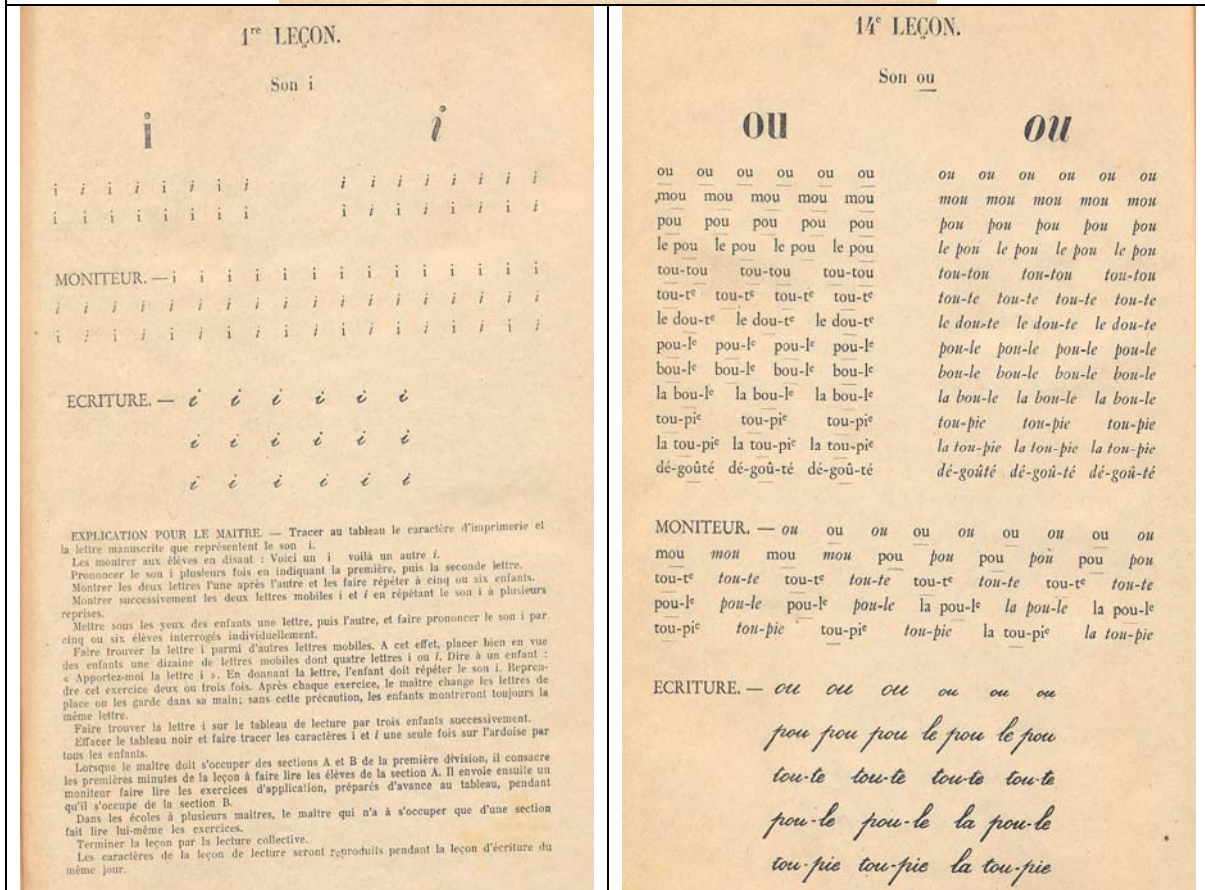 1re LEÇON.
Son i
i i
i i i i i i i i
i i i i i i i i
i i i i i i i i
i i i i i i i i
MONITEUR. — i i i i i i i i i i i i i i
i i i i i i i i i i i i i i i i i i
i i i i i i i i i i i i i i i i i i
ECRITURE. — i i i i i i
i i i i i i
i i i i i i
EXPLICATION POUR LE MAITRE. — Tracer au tableau le caractère d'imprimerie et
la lettre manuscrite que représentent le son i.
Les montrer aux élèves en disant : Voici un i voilà un autre i.
Prononcer le son i plusieurs fois en indiquant la première, puis la seconde lettre.
Montrer les deux lettres l'une après l'autre et les faire répéter à cinq ou six enfants.
Montrer successivement les deux lettres mobiles i et i en répétant le son i à plusieurs
reprises.
Mettre sous les yeux des enfants une lettre, puis l'autre, et faire prononcer le son i par
cinq ou six élèves interrogés individuellement.
Faire trouver la lettre i parmi d'autres lettres mobiles. A cet effet, placer bien en vue
des enfants une dizaine de lettres mobiles dont quatre lettres i ou i. Dire à un enfant :
« Apportez-moi la lettre i ». En donnant la lettre, l'enfant doit répéter le son i. Repren-
dre cet exercice deux ou trois fois. Après chaque exercice, le maître change les lettres de
place ou les garde dans sa main; sans cette précaution, les enfants montreront toujours la
même lettre.
Faire trouver la lettre i sur le tableau de lecture par trois enfants successivement.
Effacer le tableau noir et faire tracer les caractères i et i une seule fois sur l'ardoise par
tous les enfants.
Lorsque le maître doit s'occuper des sections A et B de la première division, il consacre
les premières minutes de la leçon à faire lire les élèves de la section A. Il envoie ensuite un
moniteur faire lire les exercices d'application, préparés d'avance au tableau, pendant
qu'il s'occupe de la section B.
Dans les écoles à plusieurs maîtres, le maître qui n'a à s'occuper que d'une section
fait lire lui-même les exercices.
Terminer la leçon par la lecture collective.
Les caractères de la leçon de lecture seront reproduits pendant la leçon d'écriture du
même jour.
14e LEÇON.
Son ou
ou ou
ou ou ou ou ou ou
mou mou mou mou mou
pou pou pou pou pou
le pou le pou le pou le pou
tou-tou tou-tou tou-tou
tou-te tou-te tou-te tou-te
le dou-te le dou-te le dou-te
pou-le pou-le pou-le pou-le
bou-le bou-le bou-le bou-le
la bou-le la bou-le la bou-le
tou-pie tou-pie tou-pie
la tou-pie la tou-pie la tou-pie
dé-goûté dé-goû-té dé-goû-té
ou ou ou ou ou ou
mou mou mou mou mou
pou pou pou pou pou
le pou le pou le pou le pou
tou-tou tou-tou tou-tou
tou-te tou-te tou-te tou-te
le dou-te le dou-te le dou-te
pou-le pou-le pou-le pou-le
bou-le bou-le bou-le bou-le
la bou-le la bou-le la bou-le
tou-pie tou-pie tou-pie
la tou-pie la tou-pie la tou-pie
dé-goûté dé-goû-té dé-goû-té
MONITEUR. — ou ou ou ou ou ou ou ou ou
mou mou mou mou pou pou pou pou pou pou
tou-te tou-te tou-te tou-te tou-te tou-te tou-te tou-te
pou-le pou-le pou-le pou-le la pou-le la pou-le la pou-le
tou-pie tou-pie tou-pie tou-pie la tou-pie la tou-pie
ECRITURE. — ou ou ou ou ou ou
pou pou pou le pou le pou
tou-te tou-te tou-te tou-te
pou-le pou-le la pou-le
tou-pie tou-pie la tou-pie